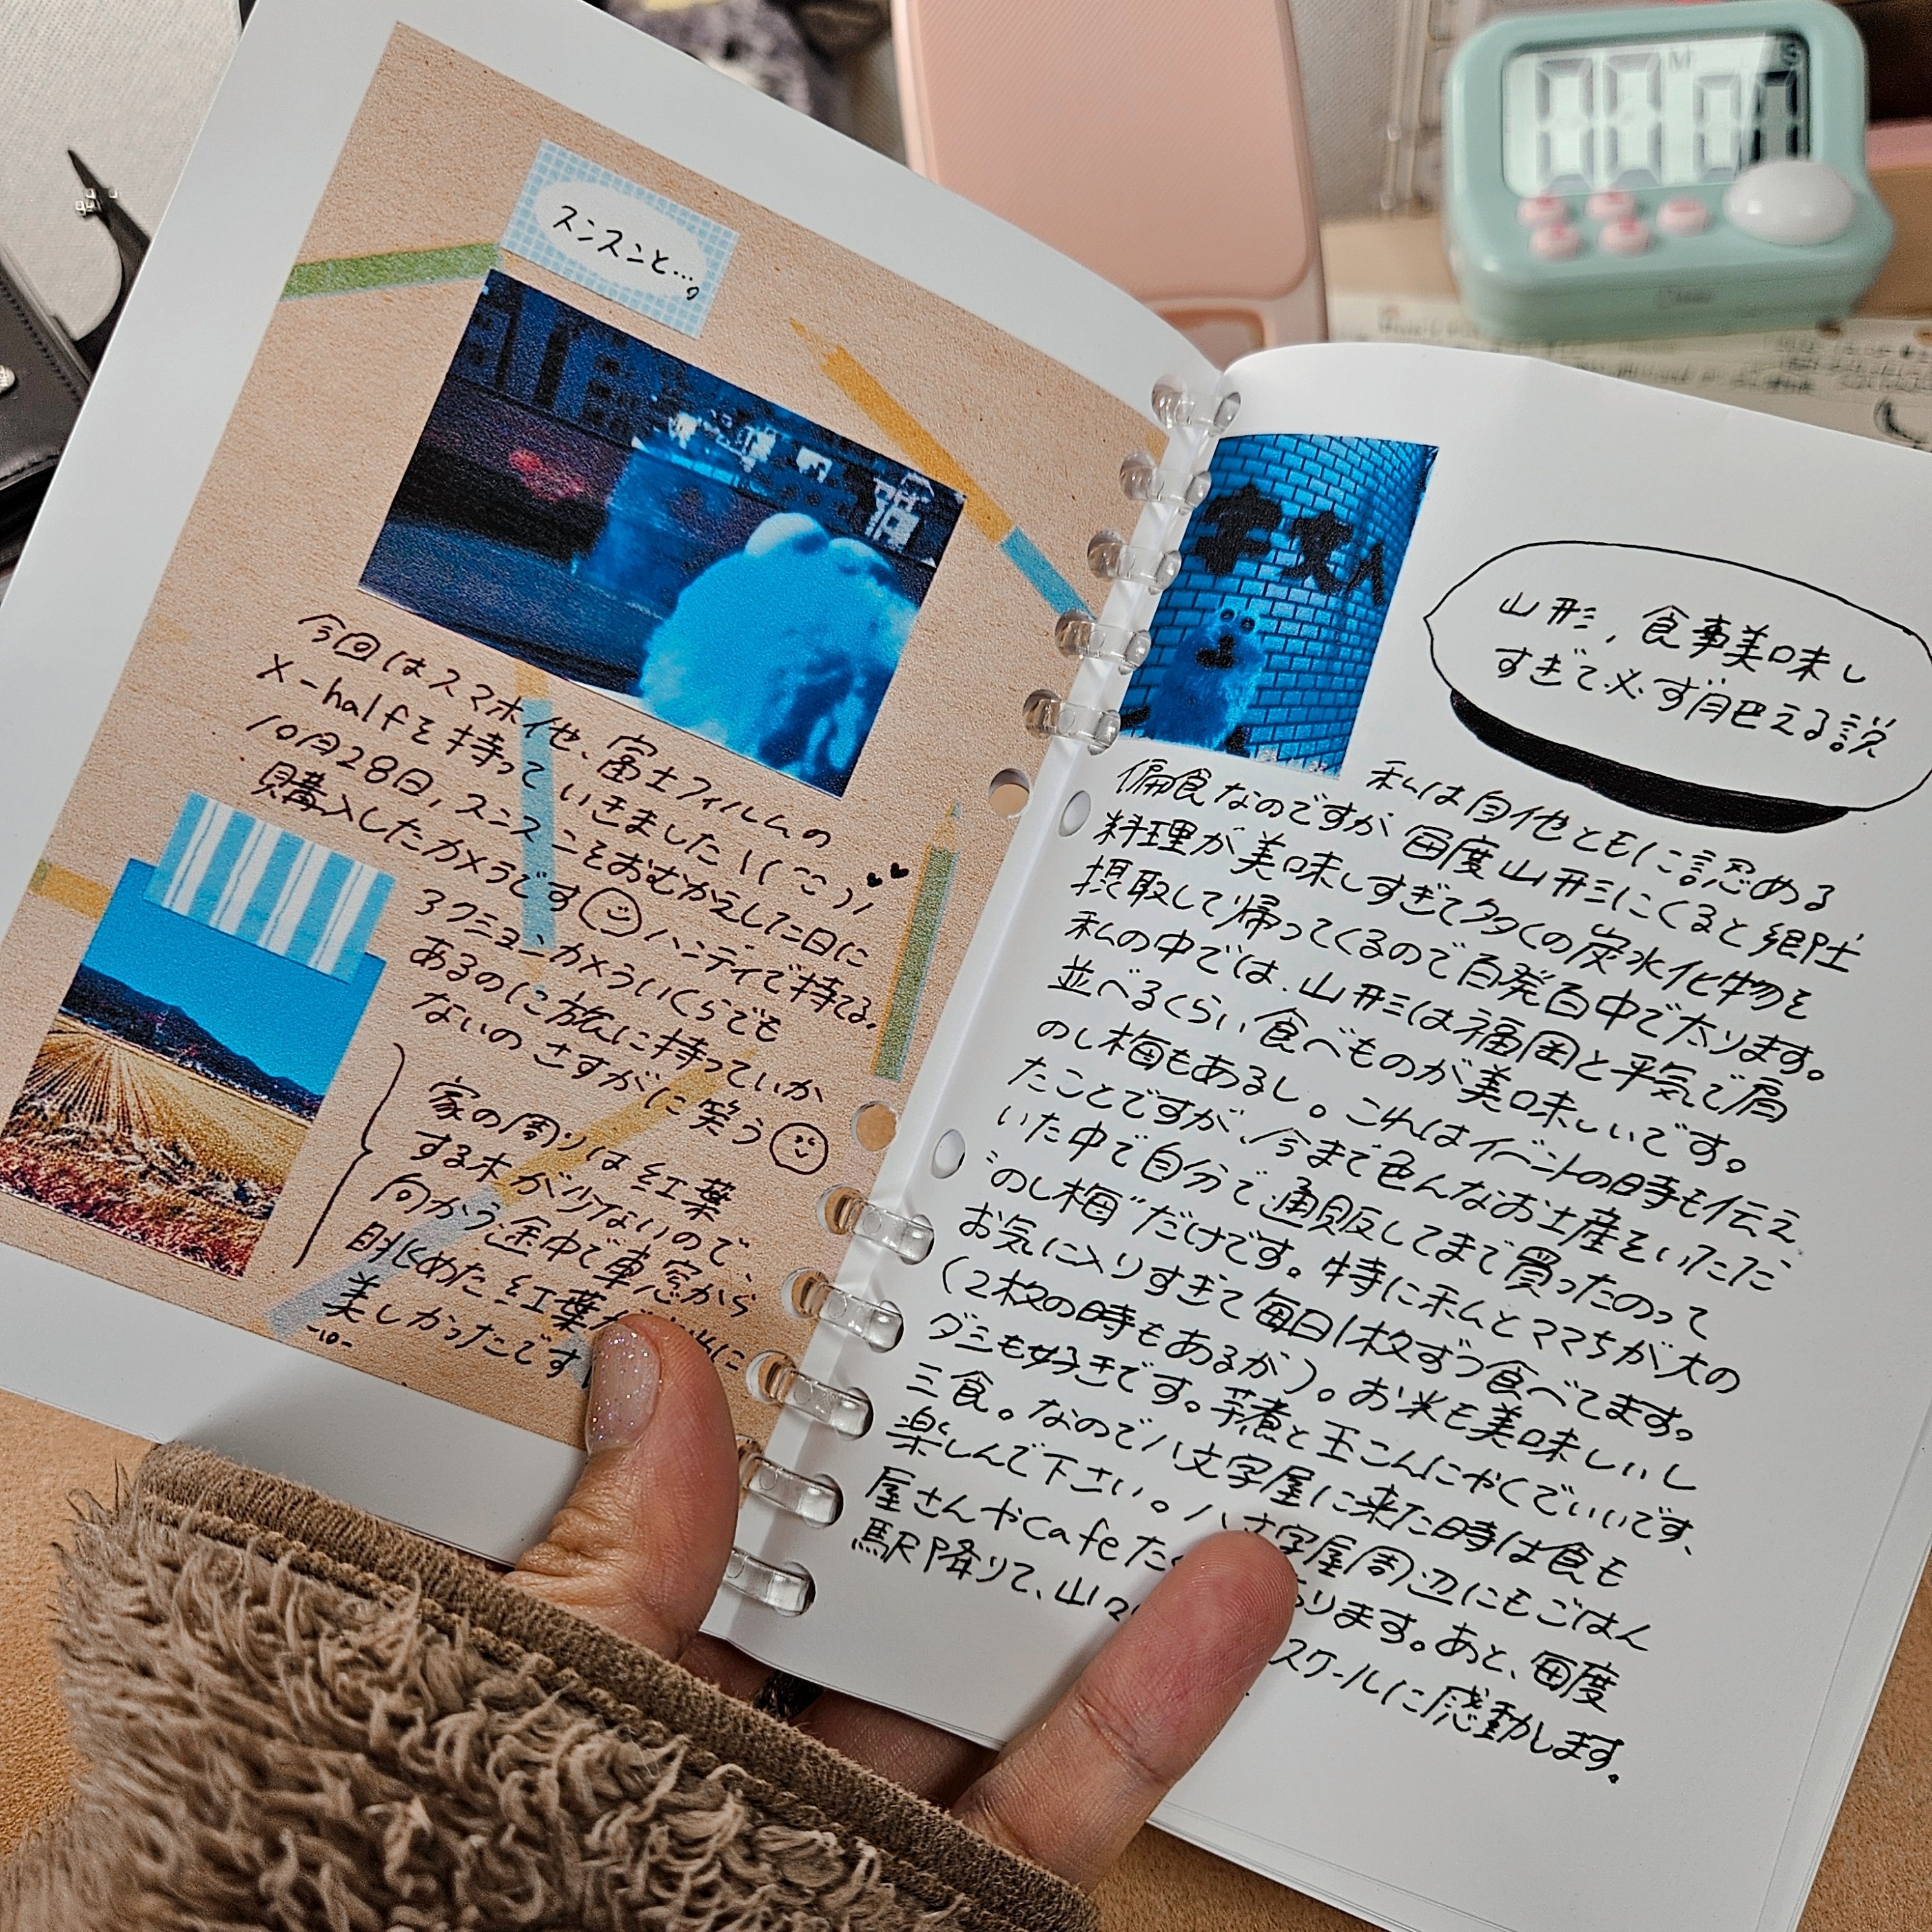 スンスンと…。
今回はスマホ他、富士フィルムの
X-halfを持っていきました\(ˆˆ)/
10月28日、スンスンをおむかえした日に
購入したカメラです ハンディで持てる
アクションカメラいくらでも
あるのに旅に持っていか
ないの さすがに笑う
家の周りは紅葉
する木が少ないので、
向かう途中で車窓から
眺めた紅葉が
美しかったです
山形、食事美味し
すぎて必ず肥える説
私は自他ともに認める
偏食なのですが毎度山形にくると郷土
料理が美味しすぎて多くの炭水化物を
摂取して帰ってくるので百発百中で太ります。
私の中では、山形は福岡と平気で肩
並べるくらい食べものが美味しいです。
のし梅もあるし。これはイベントの時も伝え
たことですが、今まで色んなお土産をいただ
いた中で自分で通販してまで買ったのって
"のし梅"だけです。特に私とママちが大の
お気に入りすぎて毎日1枚ずつ食べてます。
(2枚の時もあるが)。お米も美味しいし
ダシも好きです。芋煮と玉こんにゃくでいいです、
三食。なので八文字屋に来た時は食も
楽しんで下さい。八文字屋周辺にもごはん
屋さんやcafe ります。あと、毎度
駅降りて、山々 スケールに感動します。